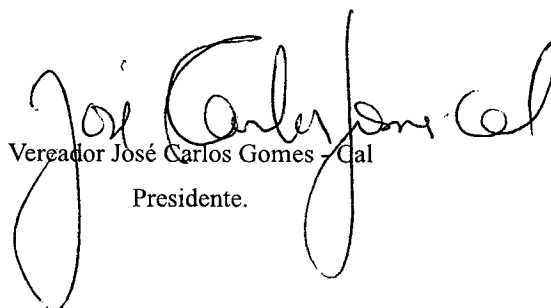 José Carlos Gomes - Cal
Vereador José Carlos Gomes - Cal
Presidente.